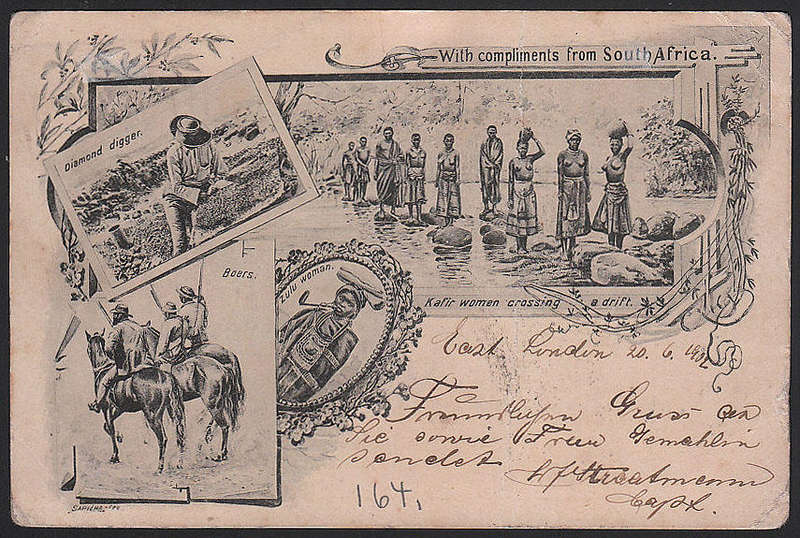 With compliments from South Africa.
Diamond digger.
Boers.
Zulu woman.
Kafir women crossing a drift.
East London 20. 6. 1902
Freundlichen Gruss an
Sie sowie Frau Gemahlin
sendet
Capt.
164.